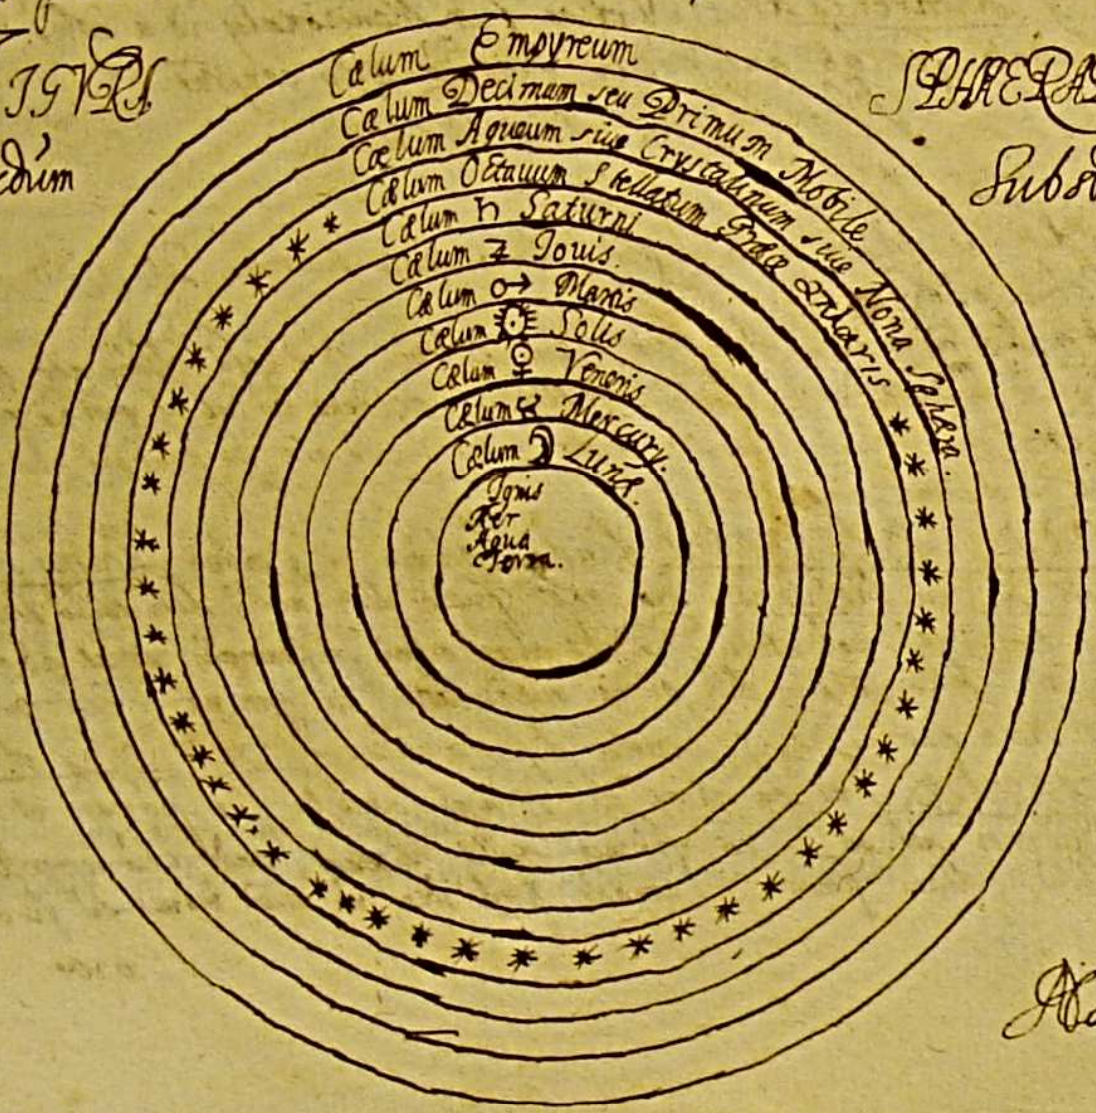 IGVRA
SPHAERA
Cælum Empyreum
Cælum Decimum seu Primum Mobile
Cælum Aqueum siue Crystalinum siue Nona Sphæra.
Cælum Octauum Stellatum Græce
Cælum ♄ Saturni
Cælum ♃ Iouis.
Cælum ♂ Martis
Cælum ☉ Solis
Cælum ♀ Veneris
Cælum ☿ Mercury.
Cælum ☽ Lunæ.
Ignis
Aer
Aqua
Terra.